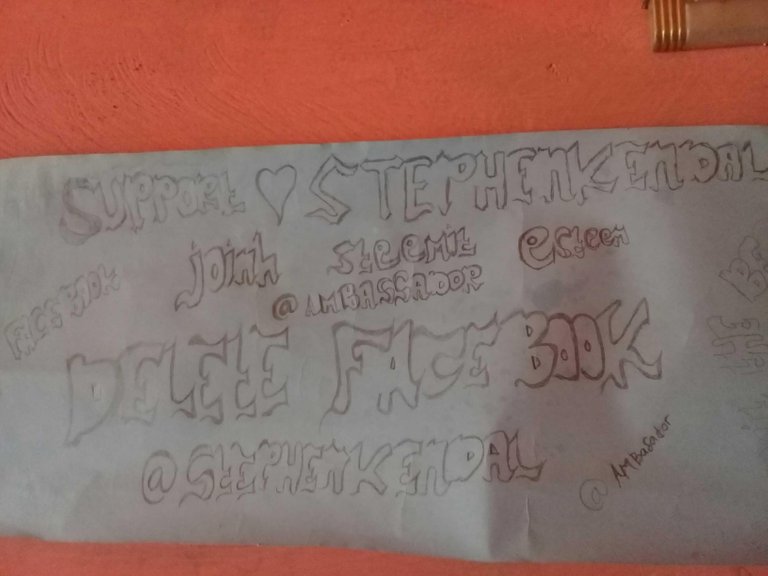 SUPPORE ♡ STEPHENKENDAL
FACEBOOK joinh steemit esteem
@AMBASSADOR
DELETE FACEBOOK
@STEPHENKENDAL
@AMBasador